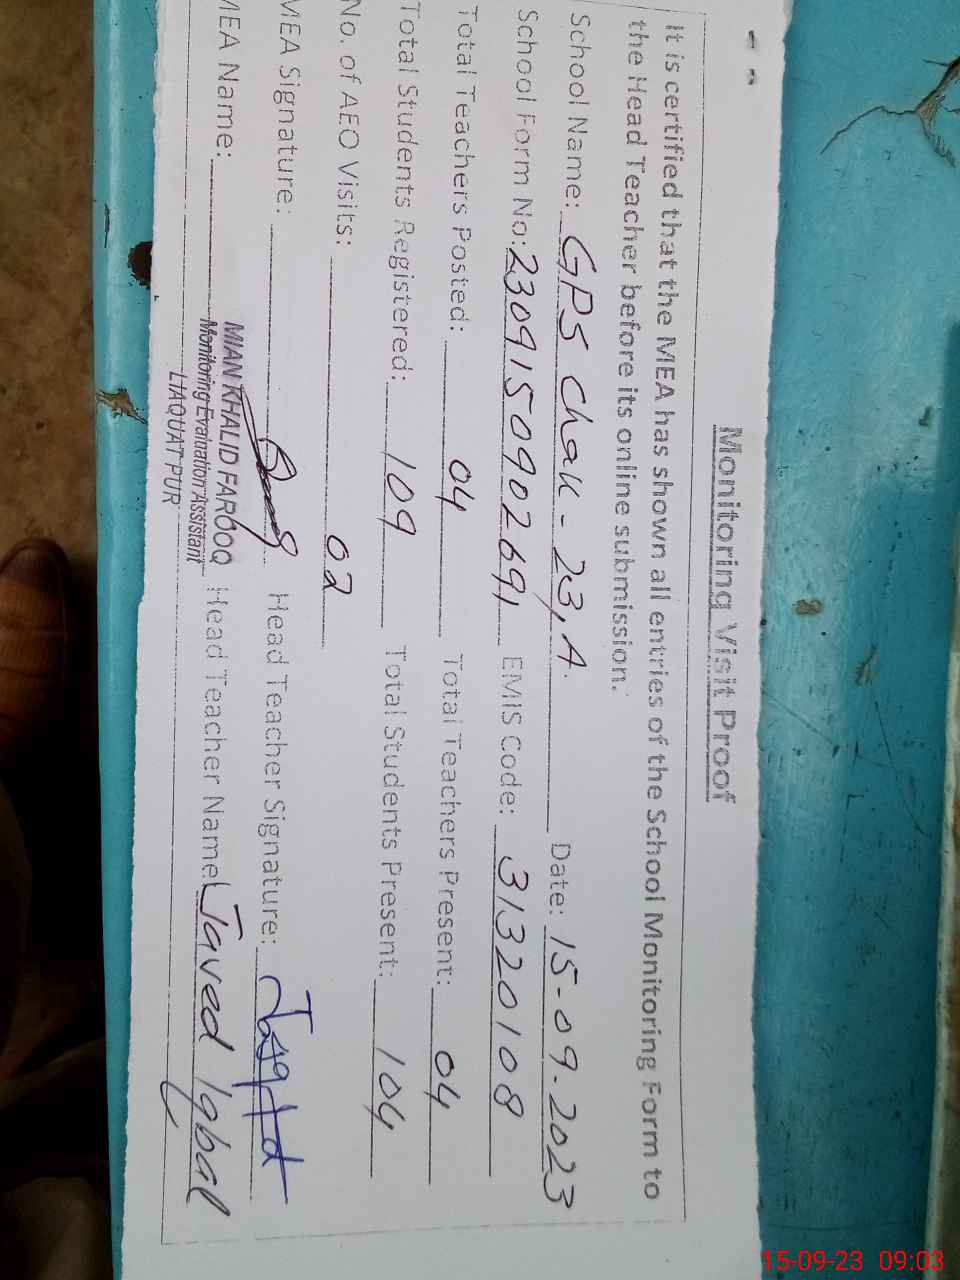 Monitoring Visit Proof
It is certified that the MEA has shown all entries of the School Monitoring Form to
the Head Teacher before its online submission.
School Name: GPS Chak-23,A. Date: 15-09-2023
School Form No: 23091509902691 EMIS Code: 31320108
Total Teachers Posted: 04 Total Teachers Present: 04
Total Students Registered: 109 Total Students Present: 104
No. of AEO Visits: 02
MEA Signature: Head Teacher Signature:
MEA Name: MIAN KHALID FAROOQ Head Teacher Name: Javed Iqbal
Monitoring Evaluation Assistant
LIAQUAT PUR
15-09-23 09:03